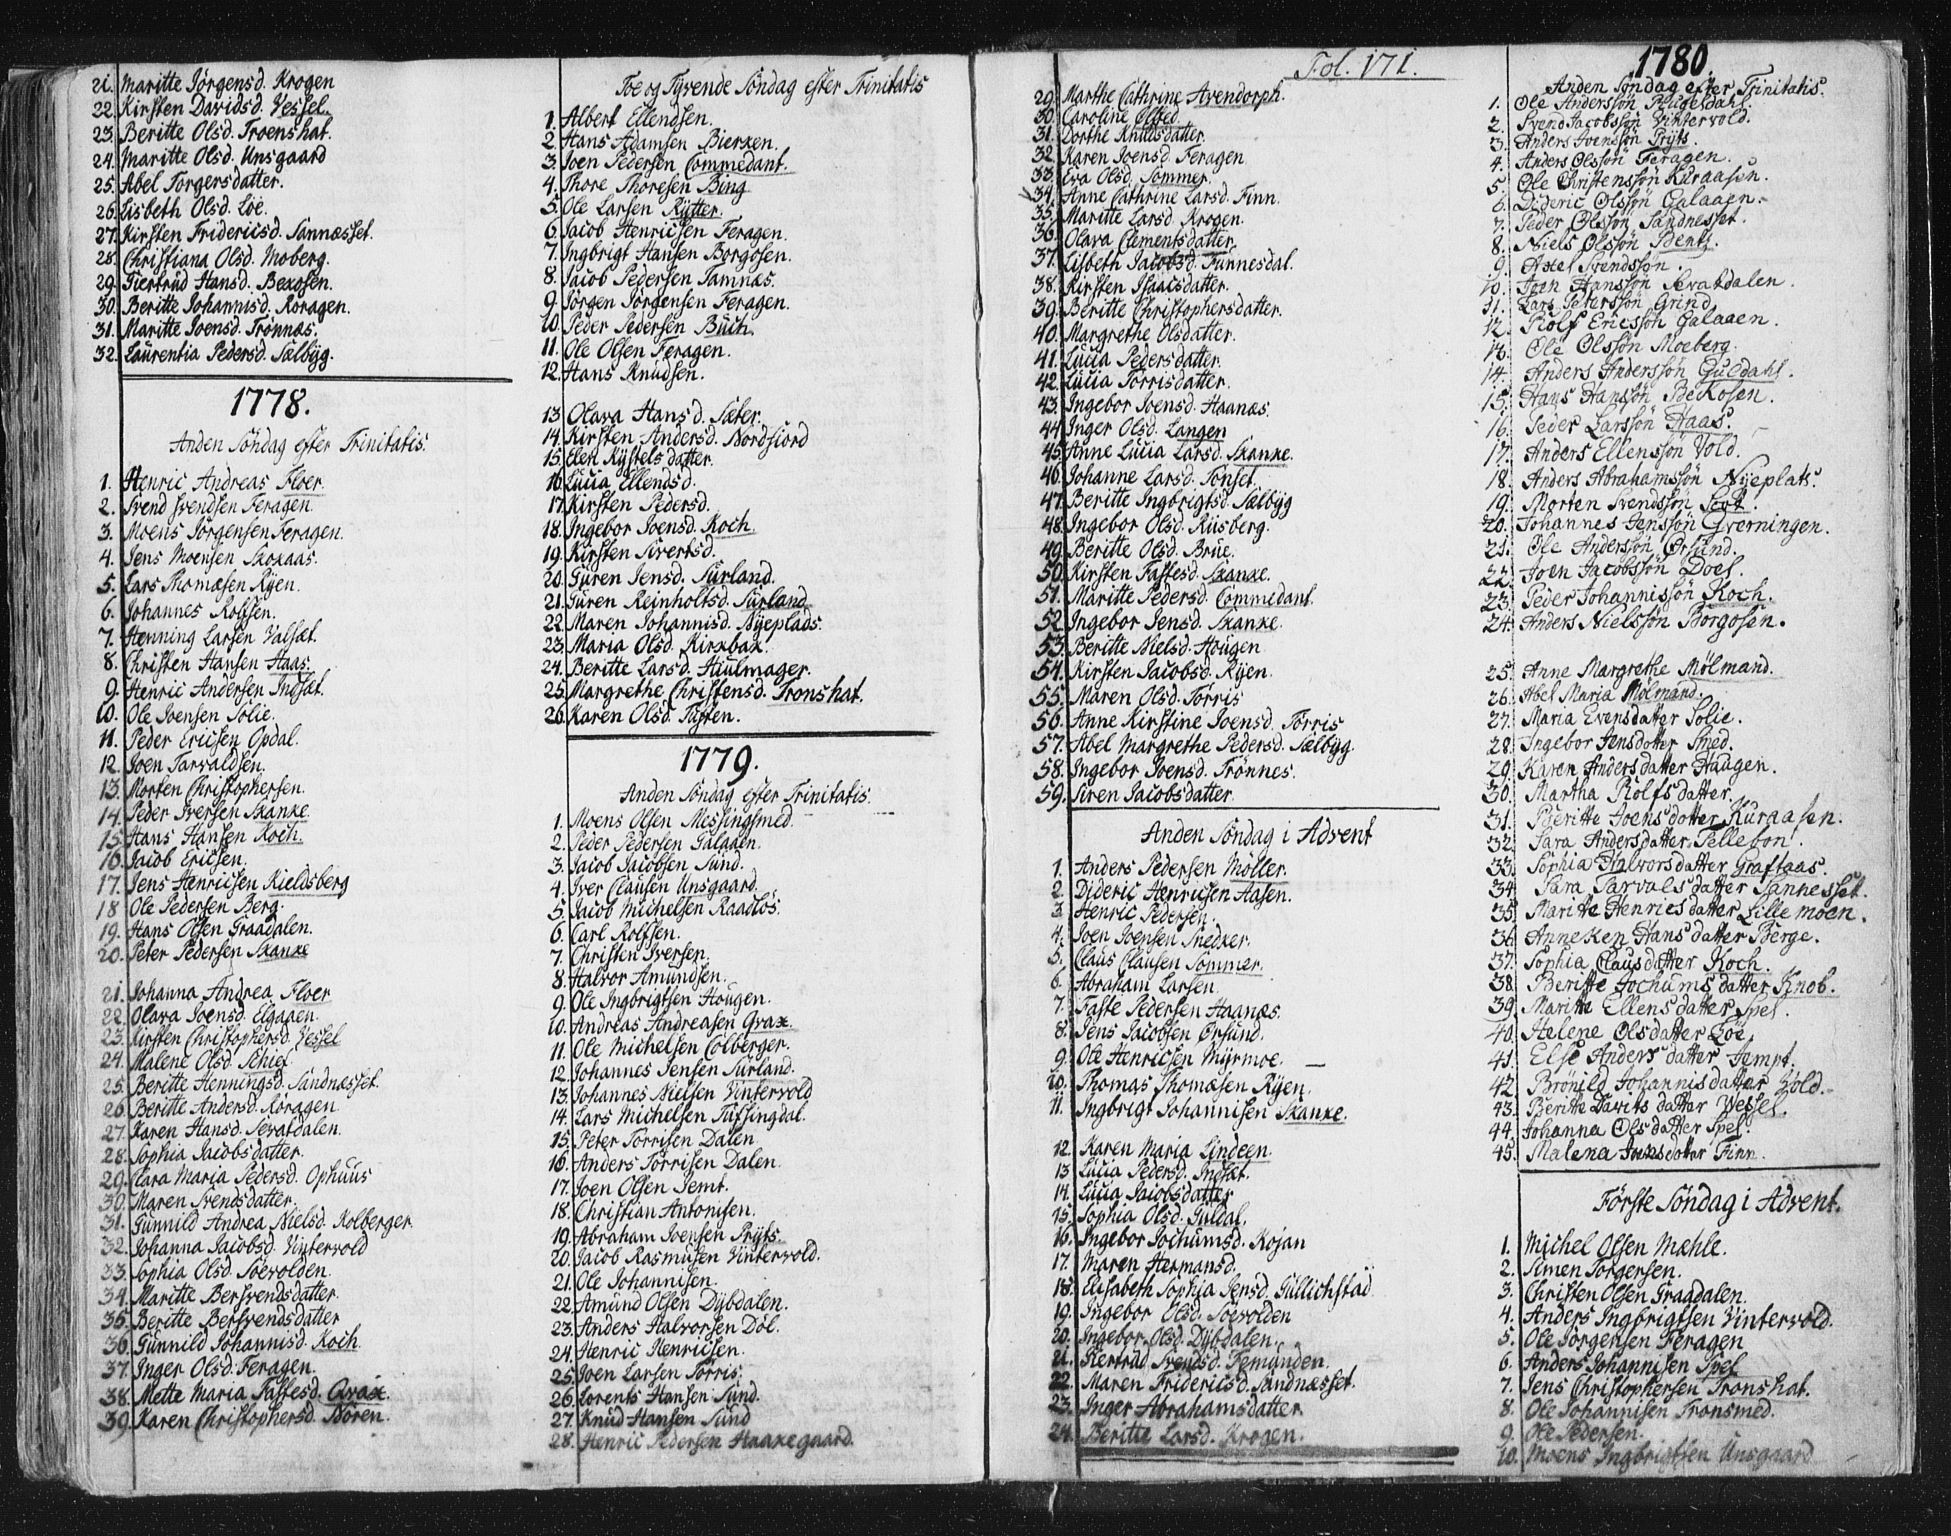 21. Maritte Jörgensd. Krogen
22. Kirsten Davidsd. Vessel.
23. Beritte Olsd. Troenshat.
24. Maritte Olsd. Unsgaard
25. Abel Torgersdatter.
26. Lisbeth Olsd. Löe.
27. Kirsten Fridericsd. Sannæsset.
28. Christiana Olsd. Moberg.
29. Giertrüd Hansd. Bexosen.
30. Beritte Johannisd. Röragen.
31. Maritte Joensd. Trönnæs.
32. Laurentia Pedersd. Sælbÿg.
1778.
Anden Söndag efter Trinitatis.
1. Henric Andreas Floer.
2. Svend Svendsen Feragen.
3. Moens Jörgensen Feragen.
4. Jens Moensen Skoxaas.
5. Lars Thomæsen Rÿen.
6. Johannes Rolfsen.
7. Henning Larsen Valsæt.
8. Christen Hansen Haas.
9. Henric Andersen Indsæt.
10. Ole Joensen Solie.
11. Peder Ericsen Opdal.
12. Joen Tarvaldsen.
13. Morten Christophersen.
14. Peder Iversen Skanxe.
15. Hans Hansen Koch.
16. Jacob Ericsen.
17. Jens Henricsen Kieldsberg
18 Ole Pedersen Berg.
19. Hans Olsen Graadalen.
20. Peter Pedersen Skanxe
21. Johanna Andrea Floer
22. Olava Joensd. Elgaaen.
23. Kirsten Christophersd. Vessel
24. Malene Olsd. Schief
25. Beritte Henningsd. Sandnæsset.
26. Beritte Andersd. Röragen
27. Karen Hansd. Sevatdalen.
28. Sophia Jacobsdatter.
29. Clara Maria Pedersd. Ophuus
30. Maren Svendsdatter.
31. Günnild Andrea Nielsd. Kolberger
32. Johanna Jacobsd. Vintervold
33. Sophia Olsd. Söevolden
34. Maritte Bersvendsdatter.
35. Beritte Bersvendsdatter
36. Günnild Johannisd. Koch.
37. Inger Olsd. Feragen.
38. Mette Maria Fastesd. Qvax
39. Karen Christophersd. Nören.
Toe og Tyvende Söndag efter Trinitatis
1. Albert Ellendsen.
2. Hans Adamsen Bierxen.
3. Joen Pedersen Commedant.
4. Thore Thoresen Bing
5. Ole Larsen Rÿtter.
6. Jacob Henricsen Feragen.
7. Ingbrigt Hansen Borgosen.
8. Jacob Pedersen Tamnæs.
9. Jörgen Jörgensen Feragen.
10. Peder Pedersen Büch.
11. Ole Olsen Feragen.
12. Hans Knüdsen.
13. Olava Hansd. Sæter.
14. Kirsten Andersd. Nordfiord
15. Elen Kÿstelsdatter.
16. Lücia Ellendsd.
17. Kirsten Pedersd.
18. Ingebor Joensd. Koch.
19. Kirsten Sivertsd.
20. Güren Jensd. Sürland.
21. Güren Reinholtsd. Sürland
22. Maren Johannisd. Nÿeplads.
23. Maria Olsd. Kirxbax.
24. Beritte Larsd. Hiulmager.
25. Margrethe Christensd. Tronshat.
26. Karen Olsd. Tÿsten.
1779.
Anden Söndag efter Trinitatis.
1. Moens Olsen Messingsmed.
2. Peder Pedersen Galaaen.
3. Jacob Jacobsen Sund.
4. Iver Clausen Unsgaard.
5. Jacob Michelsen Raadlös.
6. Carl Rolfsen.
7. Christen Iversen.
8. Halvor Amündsen.
9. Ole Ingbrigtsen Hougen.
10. Andreas Andreasen Qvax.
11. Ole Michelsen Colberger.
12. Johannes Jensen Sürland.
13. Johannes Nielsen Vintervold
14. Lars Michelsen Tüfsingdal.
15. Peter Torrisen Dalen.
16. Anders Torrisen Dalen.
17. Joen Olsen Jemt.
18. Christian Antonisen.
19. Abraham Joensen Prÿts.
20. Jacob Rasmüsen Vintervold.
21. Ole Johannisen.
22. Amünd Olsen Dÿbdalen.
23. Anders Halvorsen Döl.
24. Henric Henricsen.
25. Joen Larsen Törris.
26. Lorents Hansen Sünd.
27. Knüd Hansen Sünd
28. Henric Pedersen Haaxegaard.
Fol. 171.
29. Marthe Cathrine Avendorph.
30. Caroline Ölsted.
31. Dorthe Knudsdatter
32. Karen Joensd. Feragen
33. Eva Olsd. Sommer.
34. Anne Cathrine Larsd. Finn.
35. Maritte Larsd. Krogen.
36. Olava Clementsdatter.
37. Lisbeth Jacobsd. Funnesdal.
38. Kirsten Isaacsdatter.
39. Beritte Christophersdatter.
40. Margrethe Olsdatter.
41. Lücia Pedersdatter.
42. Lücia Torrisdatter.
43. Ingebor Joensd. Haanæs.
44. Inger Olsd. Langen
45. Anne Lücia Larsd. Skanxe.
46. Johanne Larsd. Tönset.
47. Beritte Ingbrigtsd. Sælbÿg
48. Ingebor Olsd. Rüsberg.
49. Beritte Olsd. Brüe.
50. Kirsten Fastesd. Skanxe.
51. Maritte Pedersd. Commedant.
52. Ingebor Jensd. Skanxe.
53. Beritte Nielsd. Hougen
54. Kirsten Jacobsd. Rÿen.
55. Maren Olsd. Törris
56. Anne Kirstine Joensd. Törris
57. Abel Margrethe Pedersd. Sælbÿg
58. Ingebor Joensd. Trönnes.
59. Siren Jacobsdatter.
Anden Söndag i Advent
1. Anders Pedersen Möller.
2. Dideric Henricsen Aasen.
3. Henric Pedersen.
4. Joen Joensen Snedxer.
5. Claus Clausen Sommer.
6. Abraham Larsen
7. Faste Pedersen Haanæs.
8. Jens Jacobsen Örsünd.
9. Ole Henricsen Mÿrmoe.
10. Thomas Thomæsen Rÿen.
11. Ingbrigt Johannisen Skanxe.
12. Karen Maria Lindeen.
13 Lücia Pedersd. Indsæt.
14. Lücia Jacobsdatter
15. Sophia Olsd. Güldal.
16. Ingebor Jochumsd. Kojan
17. Maren Hermansd.
18. Elisabeth Sophia Jensd. Güllichstad
19. Ingebor Olsd. Söevolden
20. Ingebor Olsd. Dÿbdalen.
21. Giertrüd Svendsd. Femünden.
22. Maren Fridericsd. Sandnæsset.
23. Inger Abrahamsdatter
24. Beritte Larsd. Krogen.
1780
Anden Söndag efter Trinitatis.
1. Ole Anderssön
2. Svend Jacobssön Vintervold.
3. Anders Svenssön Prÿts.
4. Anders Olssön Feragen.
5. Ole Christenssön Kuraasen.
6. Dideric Olssön Galaaen.
7. Peder Olssön Sandnesset.
8. Niels Olssön Bentz.
9. Axel Svendssön.
10. Joen Hanssön Sevatdalen.
11. Lars Peterssön Grind
12. Rolf Ericssön Galaaen.
13. Ole Olssön Moeberg.
14. Anders Anderssön Guldahl.
15. Hans Hanssön Bekosen.
16. Peder Larssön Haas.
17. Anders Ellenssön Vold.
18. Anders Abrahamssön Nÿeplats.
19. Morten Svendssön
20. Johannes Jenssön Gverningen.
21. Ole Anderssön Örsünd.
22. Joen Jacobssön Doel.
23. Peder Johannissön Koch.
24. Anders Nielssön Borgosen.
25. Anne Margrethe Mölmand.
26. Abel Maria Mölmand.
27. Maria Evensdatter Solie.
28. Ingebor Jensdotter Smed.
29. Karen Andersdatter Haugen.
30. Martha Rolfsdatter.
31. Beritte Joensdotter Kuraasen.
32. Sara Andersdatter Tellebon.
33. Sophia Halvorsdatter Graftaas.
34. Sara Tarvalsdatter Sannesset.
35. Maritte Henricsdatter Lillemoen.
36. Anneken Hansdatter Berge.
37. Sophia Clausdatter Koch.
38. Beritte Jochamsdatter Knob.
39. Maritte Ellensdatter Spel.
40. Helene Olsdatter Löe.
41. Else Andersdatter Jempt.
42. Brönild Johannisdatter Vold.
43. Beritte Davitsdatter Wessel.
44. Johanna Olsdatter Spel.
45. Malena Jonsdotter Finn.
Förste Söndag i Advent.
1. Michel Olsen Mæhle.
2. Simen Torgersen.
3. Christen Olsen Graadalen.
4. Anders Ingbrigtsen Vintervold.
5. Ole Jörgensen Feragen
6. Anders Johannisen Spel
7. Jens Christophersen Tronshat.
8. Ole Johannisen Tronsmed.
9. Ole Pedersen.
10. Moens Ingbrigtsen Unsgaard